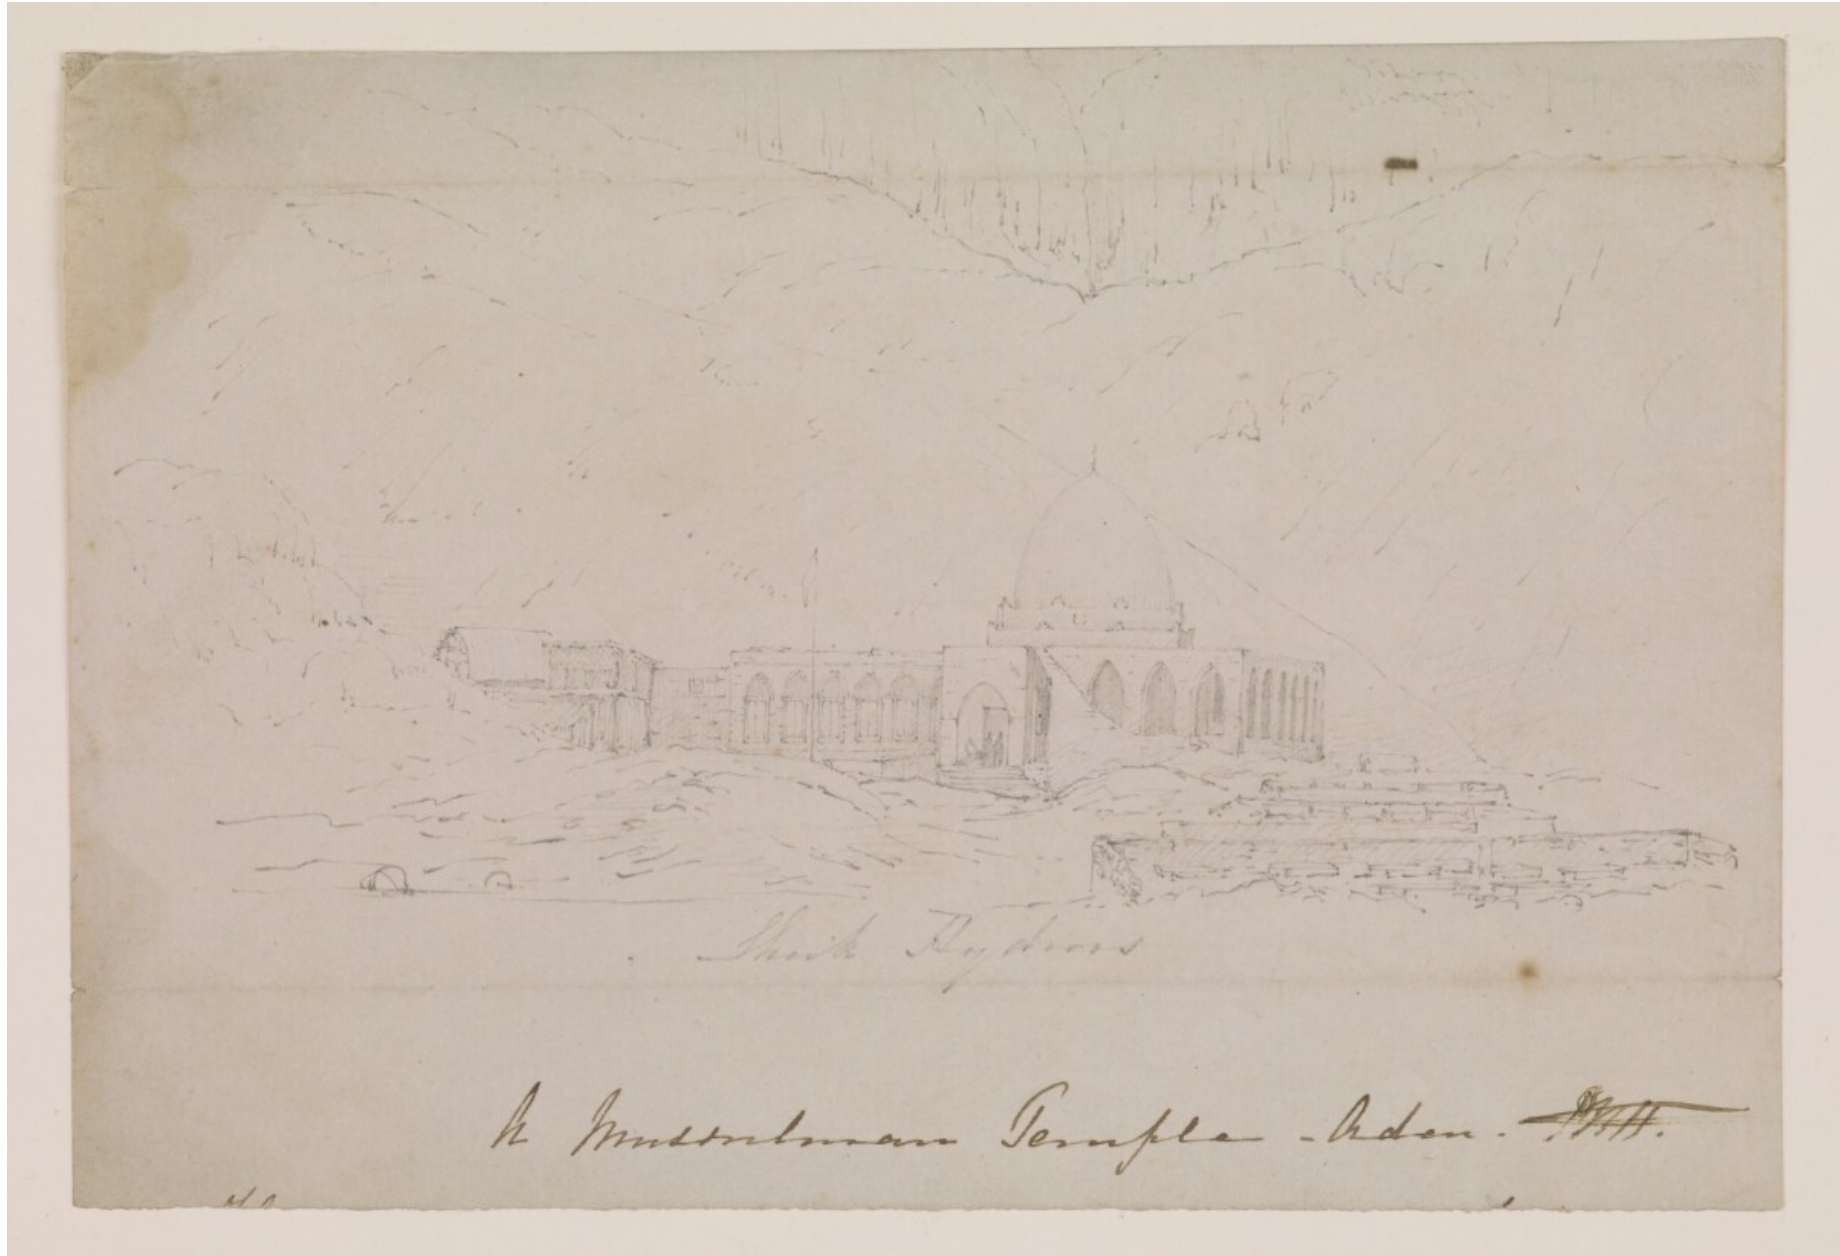 Sheik Hydroos
A Mussulman Temple - Aden.